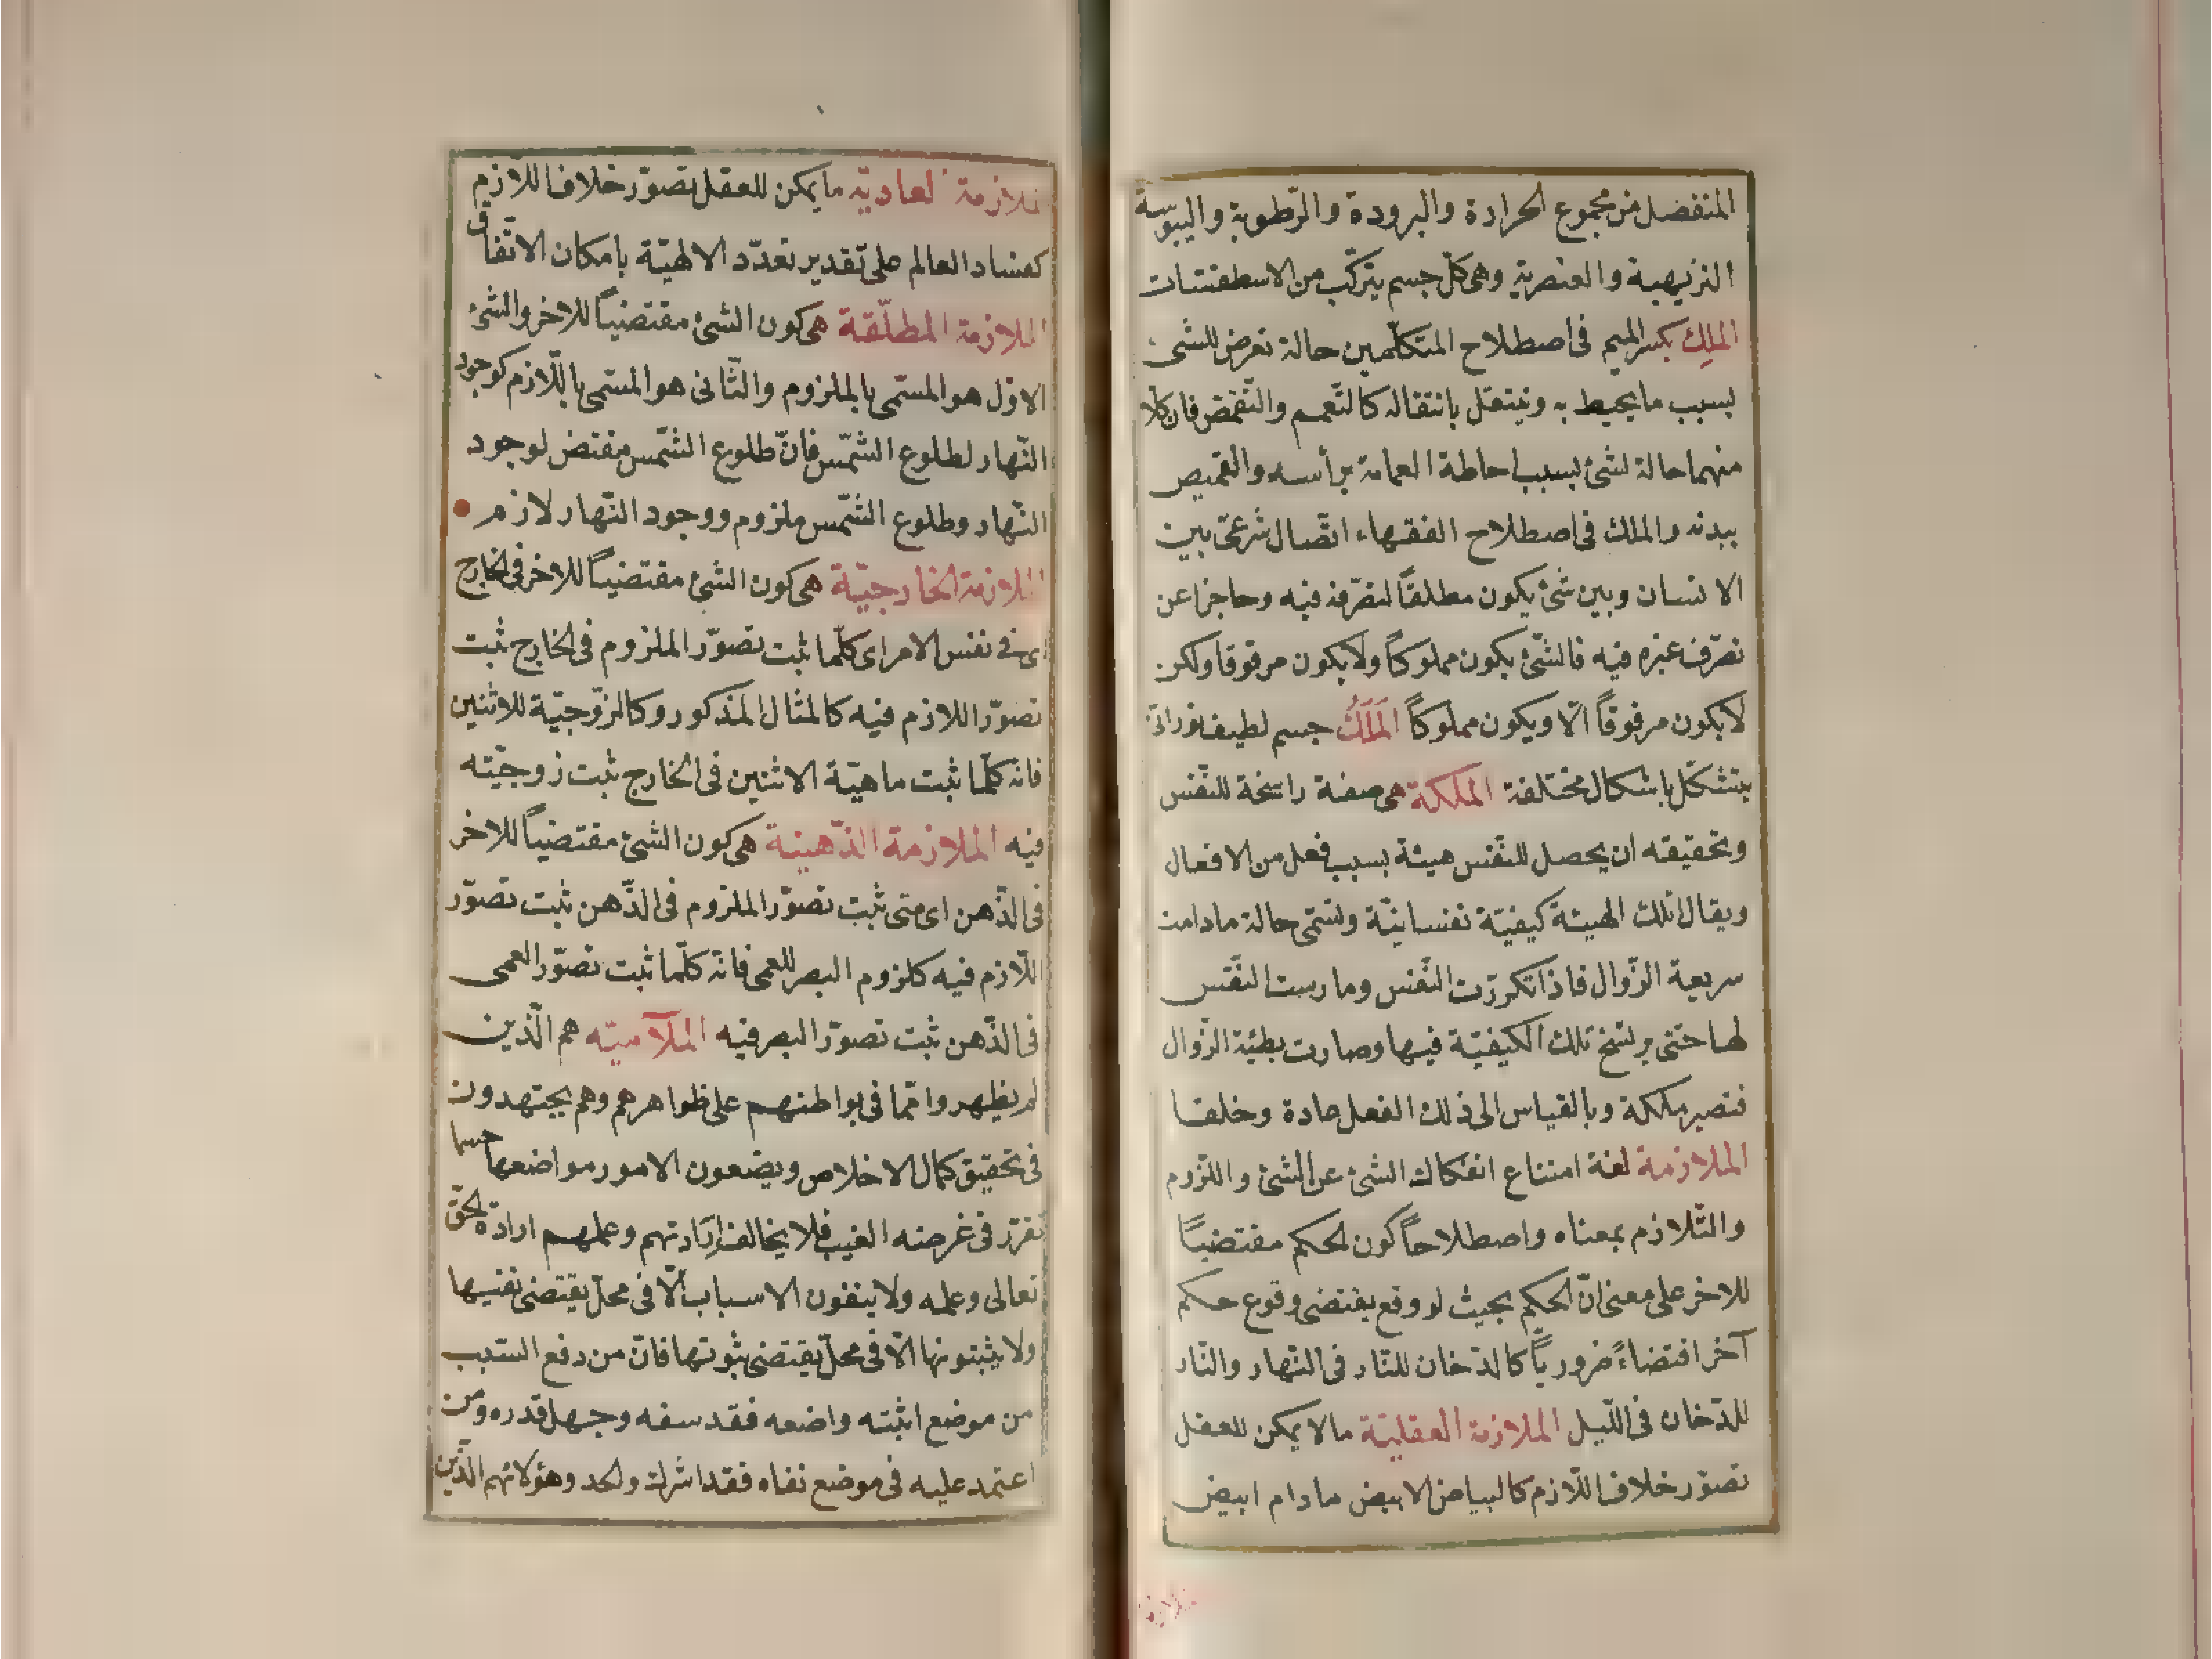 المنفصل من مجموع الحرارة والبرودة والرّطوبة واليبوسة
النزيهية والعنصرية وهى كلّ جسم يتركّب من الاسطقسات
الملِك بكسر الميم فى اصطلاح المتكلّمين حالة تعرض للشئ
بسبب ما يحيط به وينتقل بانتقاله كالتّعمم والتّقمّص فان كلا
منهما حالة لشئ بسبب احاطة العمامة برأسه والقميص
ببدنه والملك فى اصطلاح الفقهاء اتّصال شرعىّ بين
الانسان وبين شئ يكون مطلقًا لتصّرفه فيه وحاجزا عن
تصّرف غيره فيه فالشّئ يكون مملوكاً ولا يكون مرقوقا ولكن
لا يكون مرقوقاً الّا ويكون مملوكاً المَلَكُ جسم لطيف نورانىّ
يتشكّل باشكال مختلفة الملكة هى صفة راسخة للنّفس
وتحقيقه ان يحصل للنّفس هيئة بسبب فعل من الافعال
ويقال لتلك الهيئة كيفيّة نفسانيّة وتسّمى حالة مادامت
سريعة الزّوال فاذا تكررّت النّفس ومارست النّفس
لها حتّى يرتسخ تلك الكيفيّة فيها وصارت بطيئة الزّوال
فتصير ملكة وبالقياس الى ذلك الفعل عادة وخلقا
الملازمة لغة امتناع انفكاك الشئ عن الشئ واللّزوم
والتّلازم بمعناه واصطلاحاً كون الحكم مقتضياً
للاخر على معنى انّ الحكم بحيث لو وقع يقتضى وقوع حكم
آخر اقتضاءً ضرورياً كالدّخان للنّار فى النّهار والنّار
للدّخان فى اللّيل الملازمة العقليّة ما لا يمكن للعقل
تصوّر خلاف اللّازم كالبياض للابيض مادام ابيض
ملازمة العاديّه ما يمكن للعقل تصوّر خلاف اللازم
كفساد العالم على تقدير تعدّد الالهيّة بامكان الاتّفاق
الملازمة المطلّقة هى كون الشئ مقتضياً للاخر والشئ
الاوّل هو المسّمى بالملزوم والثّانى هو المسّمى باللّازم كوجود
النّهار لطلوع الشّمس فانّ طلوع الشّمس مقتض لوجود
النّهار وطلوع الشّمس ملزوم ووجود النّهار لازم
الملازمة الخارجيّة هى كون الشئ مقتضياً للاخر فى الخارج
اى فى نفس الامر اى كلّما ثبت تصوّر الملزوم فى الخارج ثبت
تصوّر اللازم فيه كالمثال المذكور وكالزّوجيّة للاثنين
فانه كلّما ثبت ماهيّة الاثنين فى الخارج ثبت زوجيّته
فيه الملازمة الذّهينة هى كون الشئ مقتضياً للاخر
فى الذّهن اى متى ثبت تصوّر الملزوم فى الذّهن ثبت تصوّر
اللّازم فيه كلزوم البصر للعمى فانّه كلّما ثبت تصوّر العمى
فى الذّهن ثبت تصوّر البصر فيه الملآميّه هم الّذين
لم يظهروا ممّا فى بواطنهم على ظواهرهم وهم يجتهدون
فى تحقيق كمال الاخلاص ويضعون الامور مواضعها حسبما
تقرّر فى غرصنه الغيب فلا يخالف ارادتهم وعلمهم ارادة الحقّ
تعالى وعلمه ولا ينفون الاسباب الّا فى محلّ يقتضى نفيها
ولا يثبتونها الّا فى محلّ يقتضى ثبوتها فانّ من دفع السّبب
من موضع اثبته واضعه فقد سفه وجهل قدره ومن
اعتمد عليه فى موضع نفاه فقد اشرك والحد وهؤلائهم الّذين
ملازمة